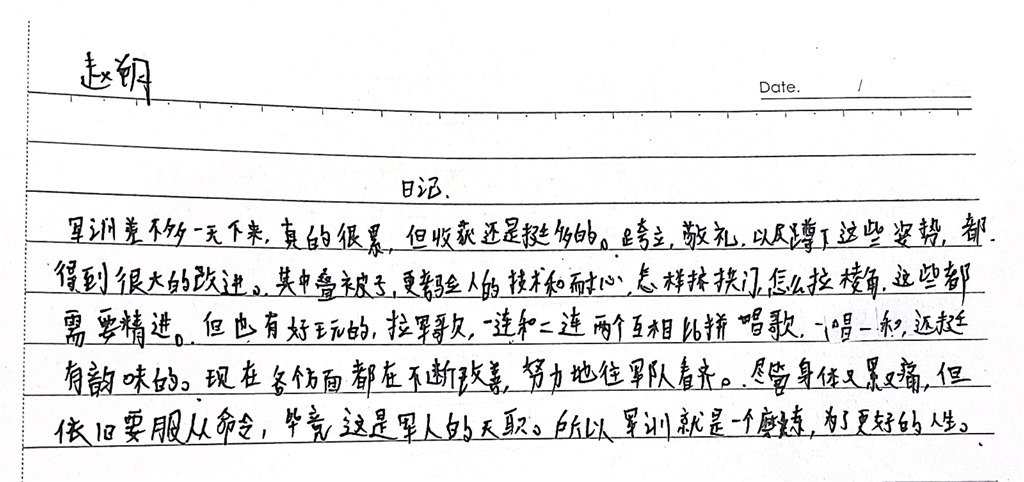 赵明
Date. /
日记.
军训差不多一天下来,真的很累,但收获还是挺多的。跨立,敬礼,以及蹲下这些姿势,都
得到很大的改进。其中叠被子,更考验人的技术和耐心,怎样抹拱门,怎么拉棱角,这些都
需要精进。但也有好玩的,拉军歌,一连和二连两个互相比拼唱歌,一唱一和,还挺
有韵味的。现在各方面都在不断改善,努力地往军队看齐。尽管身体又累又痛,但
依旧要服从命令,毕竟这是军人的天职。所以军训就是一个磨炼,为了更好的人生。